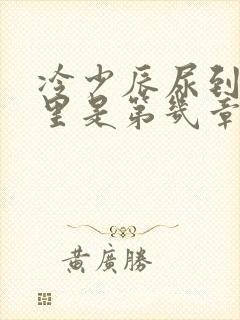 冷少辰尿到
里是第几章
黄廣勝